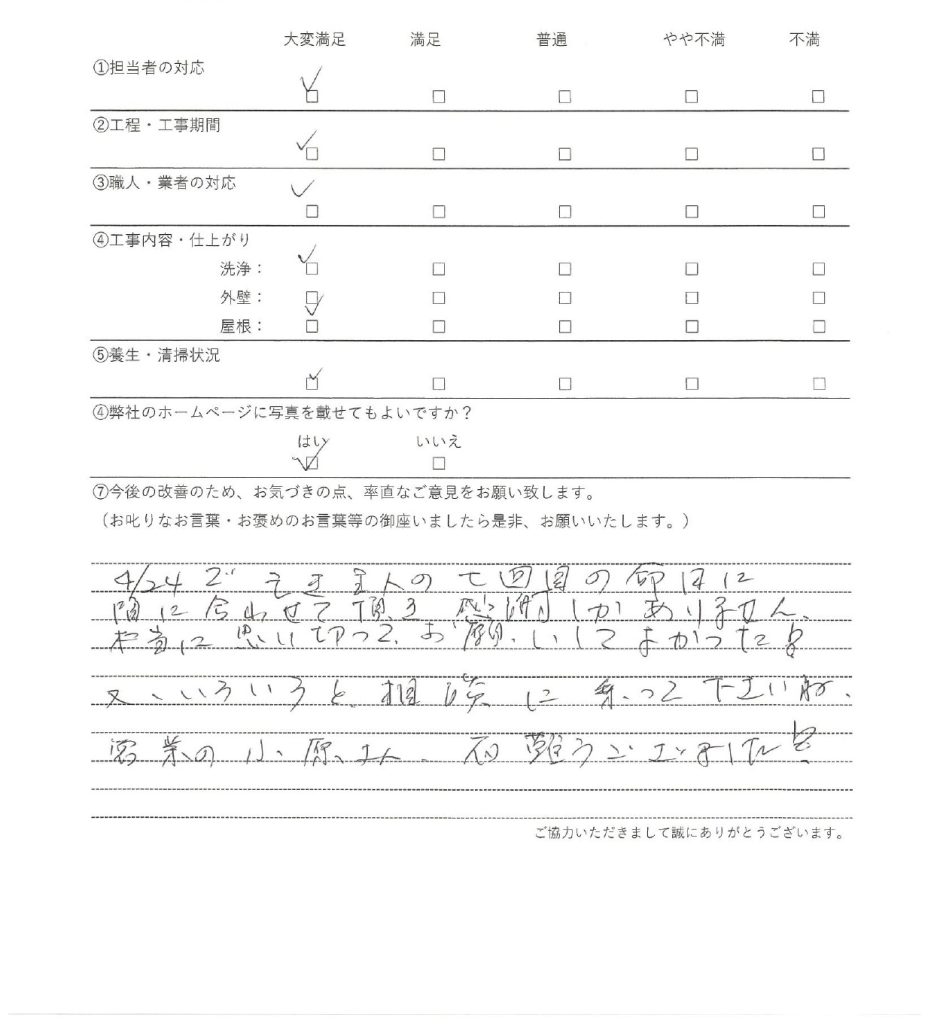 大変満足 満足 普通 やや不満 不満
①担当者の対応
✓
□ □ □ □ □
②工程・工事期間
✓
□ □ □ □ □
③職人・業者の対応
✓
□ □ □ □ □
④工事内容・仕上がり
✓
洗浄： □ □ □ □ □
外壁： □ □ □ □ □
✓
屋根： □ □ □ □ □
⑤養生・清掃状況
✓
□ □ □ □ □
④弊社のホームページに写真を載せてもよいですか？
はい いいえ
✓
□ □
⑦今後の改善のため、お気づきの点、率直なご意見をお願い致します。
（お叱りなお言葉・お褒めのお言葉等の御座いましたら是非、お願いいたします。）
4/24で 主人の七回目の命日に
間に合わせて頂き感謝しかありません、
本当に思い切って、お願いしてよかった！
又、いろいろと相談に乗って下さいね、
営業の小原さん、有難うございました！
ご協力いただきまして誠にありがとうございます。